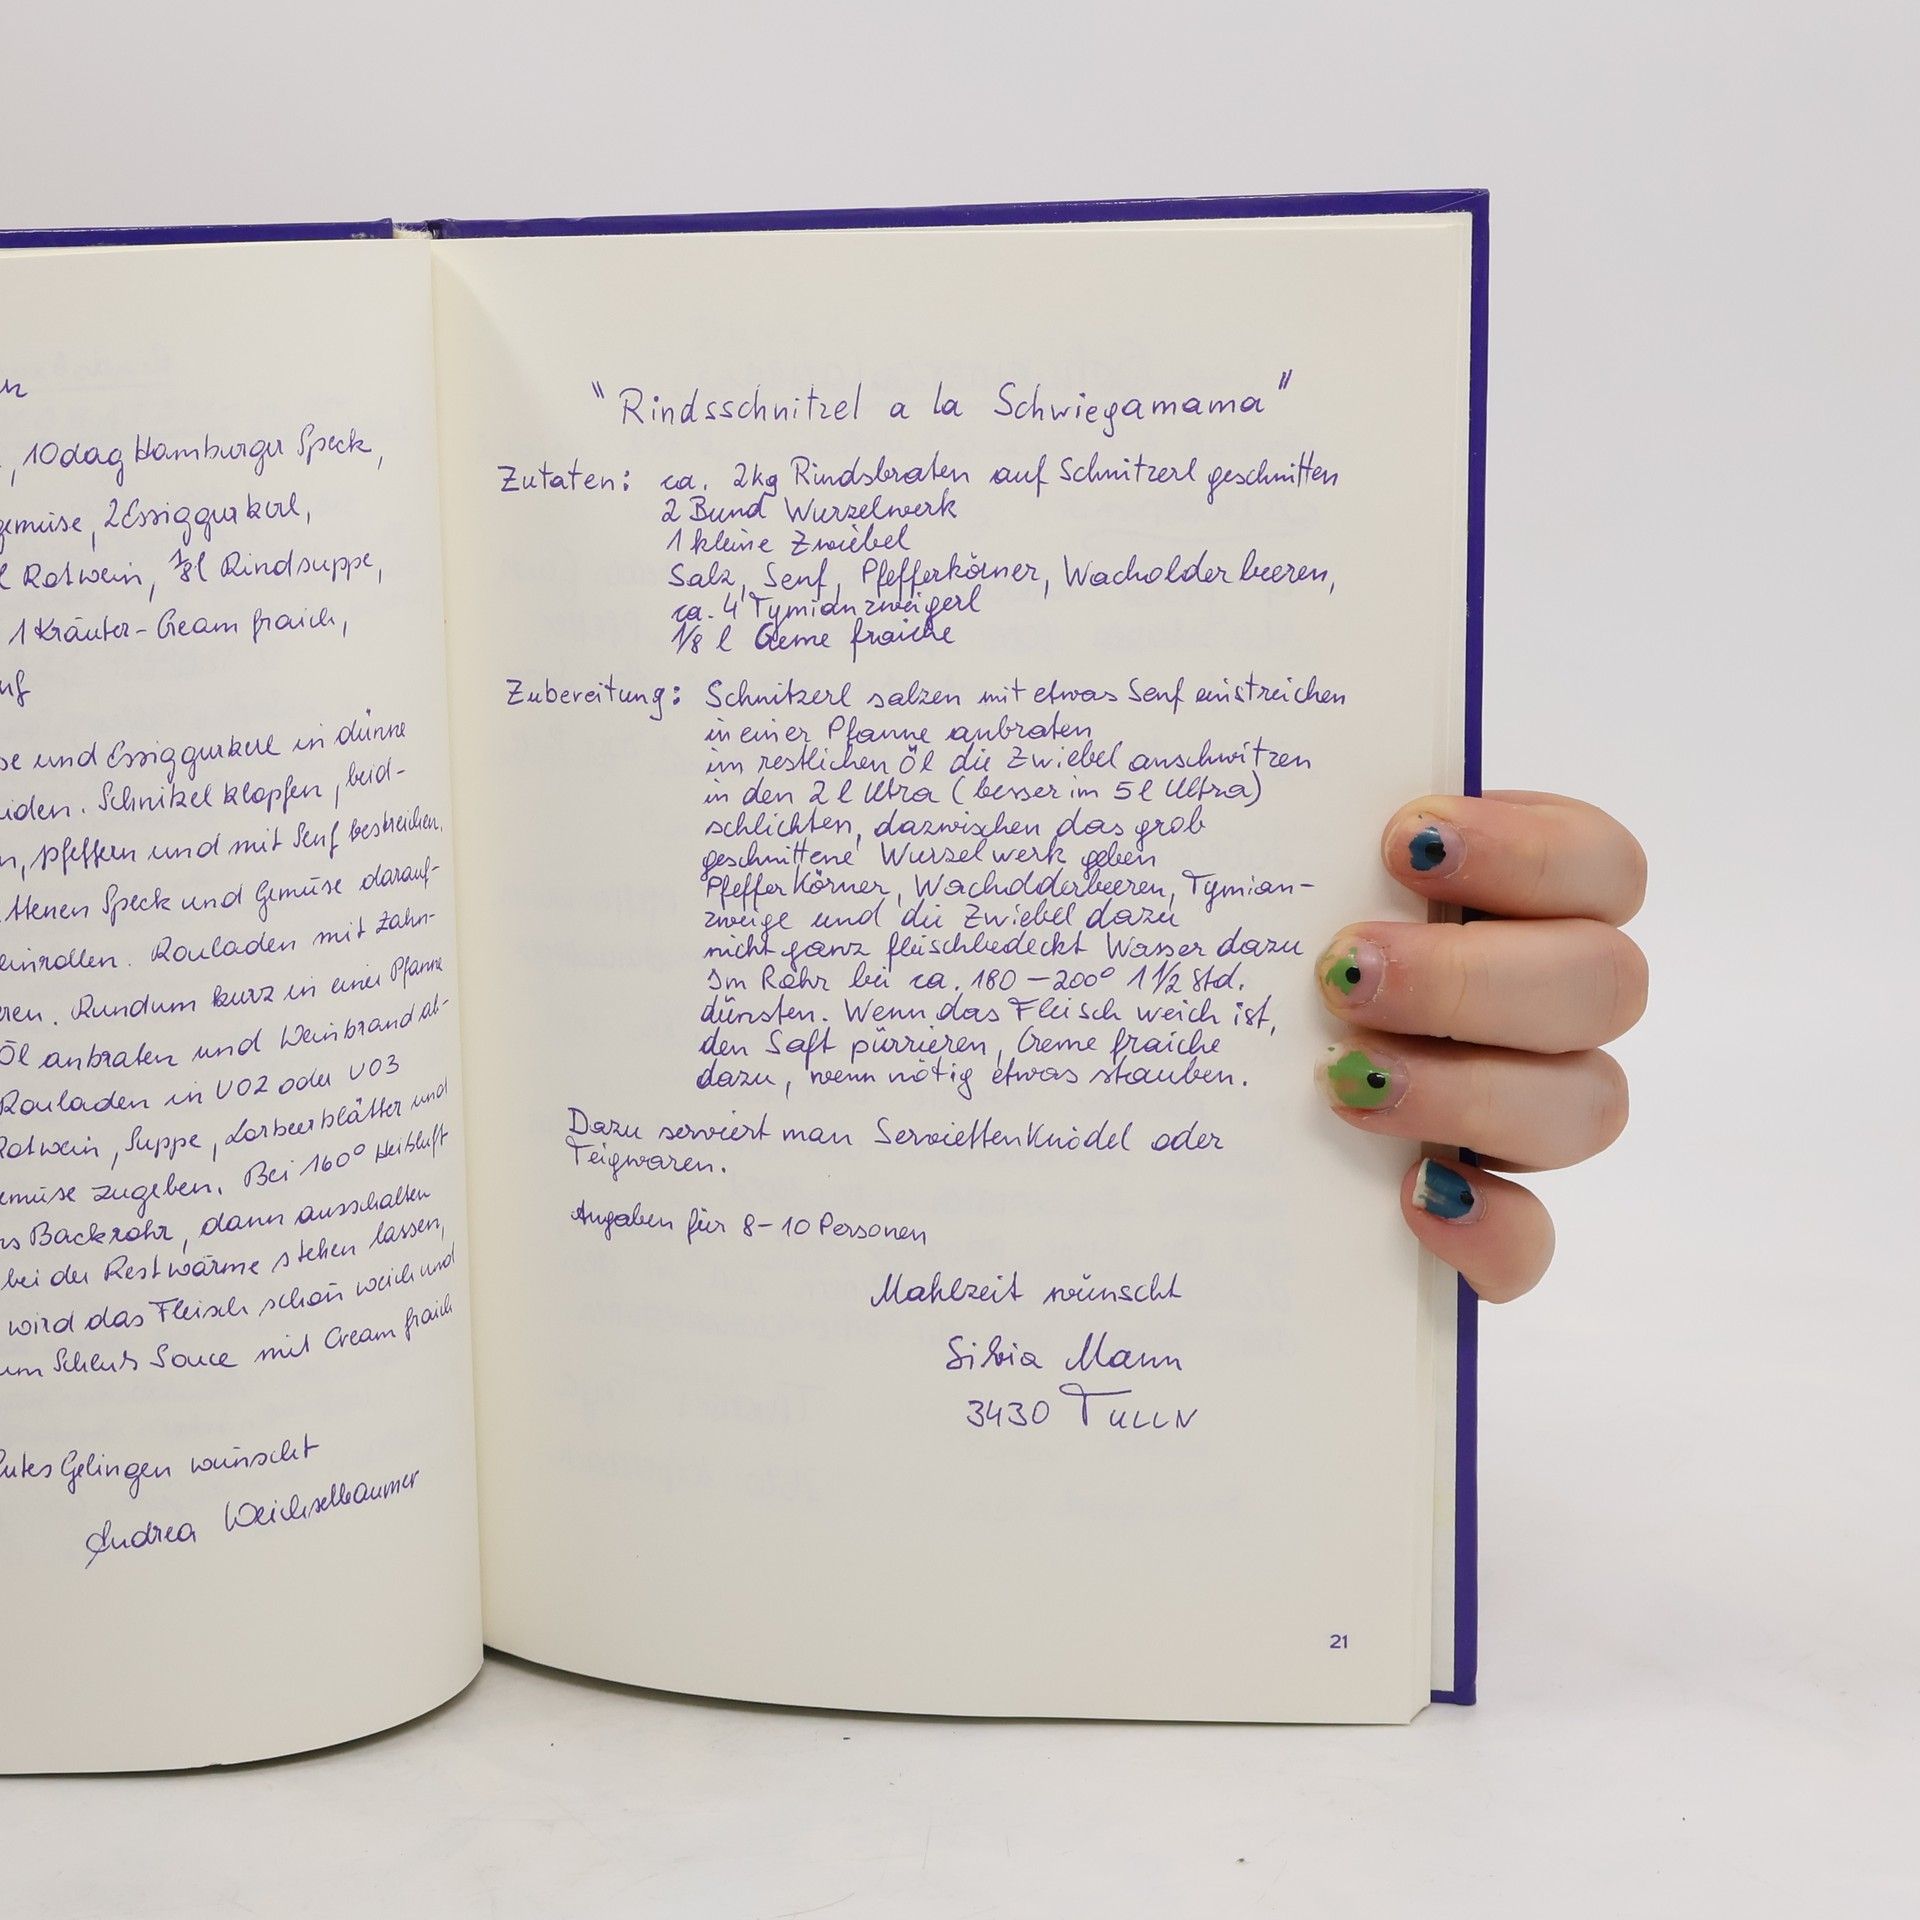 n
, 10dag Hamburger Speck,
gemüse, 2 Essiggurkerl,
l Rotwein, 1/8 l Rindsuppe,
1 Kräuter-Cream fraich,
nf
se und Essiggurkerl in dünne
iden. Schnitzel klopfen, beid-
n, pfeffern und mit Senf bestreichen.
ttenen Speck und Gemüse darauf-
einrollen. Rouladen mit Zahn-
ren. Rundum kurz in einer Pfanne
Öl anbraten und Weinbrand ab-
Rouladen in VO2 oder VO3
Rotwein, Suppe, Lorbeerblätter und
emüse zugeben. Bei 160° Heißluft
ns Backrohr, dann ausschalten
bei der Restwärme stehen lassen,
wird das Fleisch schön weich und
um Schluß Souce mit Cream fraich
Gutes Gelingen wünscht
Andrea Weichselbaumer
"Rindsschnitzel a la Schwiegamama"
Zutaten: ca. 2kg Rindsbraten auf Schnitzerl geschnitten
2 Bund Wurzelwerk
1 kleine Zwiebel
Salz, Senf, Pfefferkörner, Wacholderbeeren,
ca. 4 Tymianzweigerl
1/8 l Creme fraiche
Zubereitung: Schnitzerl salzen mit etwas Senf einstreichen
in einer Pfanne anbraten
im restlichen Öl die Zwiebel anschwitzen
in den 2 l Ultra (besser im 5 l Ultra)
schlichten, dazwischen das grob
geschnittene Wurzelwerk geben
Pfefferkörner, Wacholderbeeren, Tymian-
zweige und die Zwiebel dazu
nicht ganz fleischbedeckt Wasser dazu
Im Rohr bei ca. 180 – 200° 1 1/2 Std.
dünsten. Wenn das Fleisch weich ist,
den Saft pürrieren, Creme fraiche
dazu, wenn nötig etwas stauben.
Dazu serviert man Serviettenknödel oder
Teigwaren.
Angaben für 8-10 Personen
Mahlzeit wünscht
Silvia Mann
3430 TULLN
21